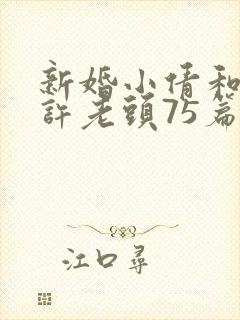 新婚小倩和
許老頭75篇
江口尋